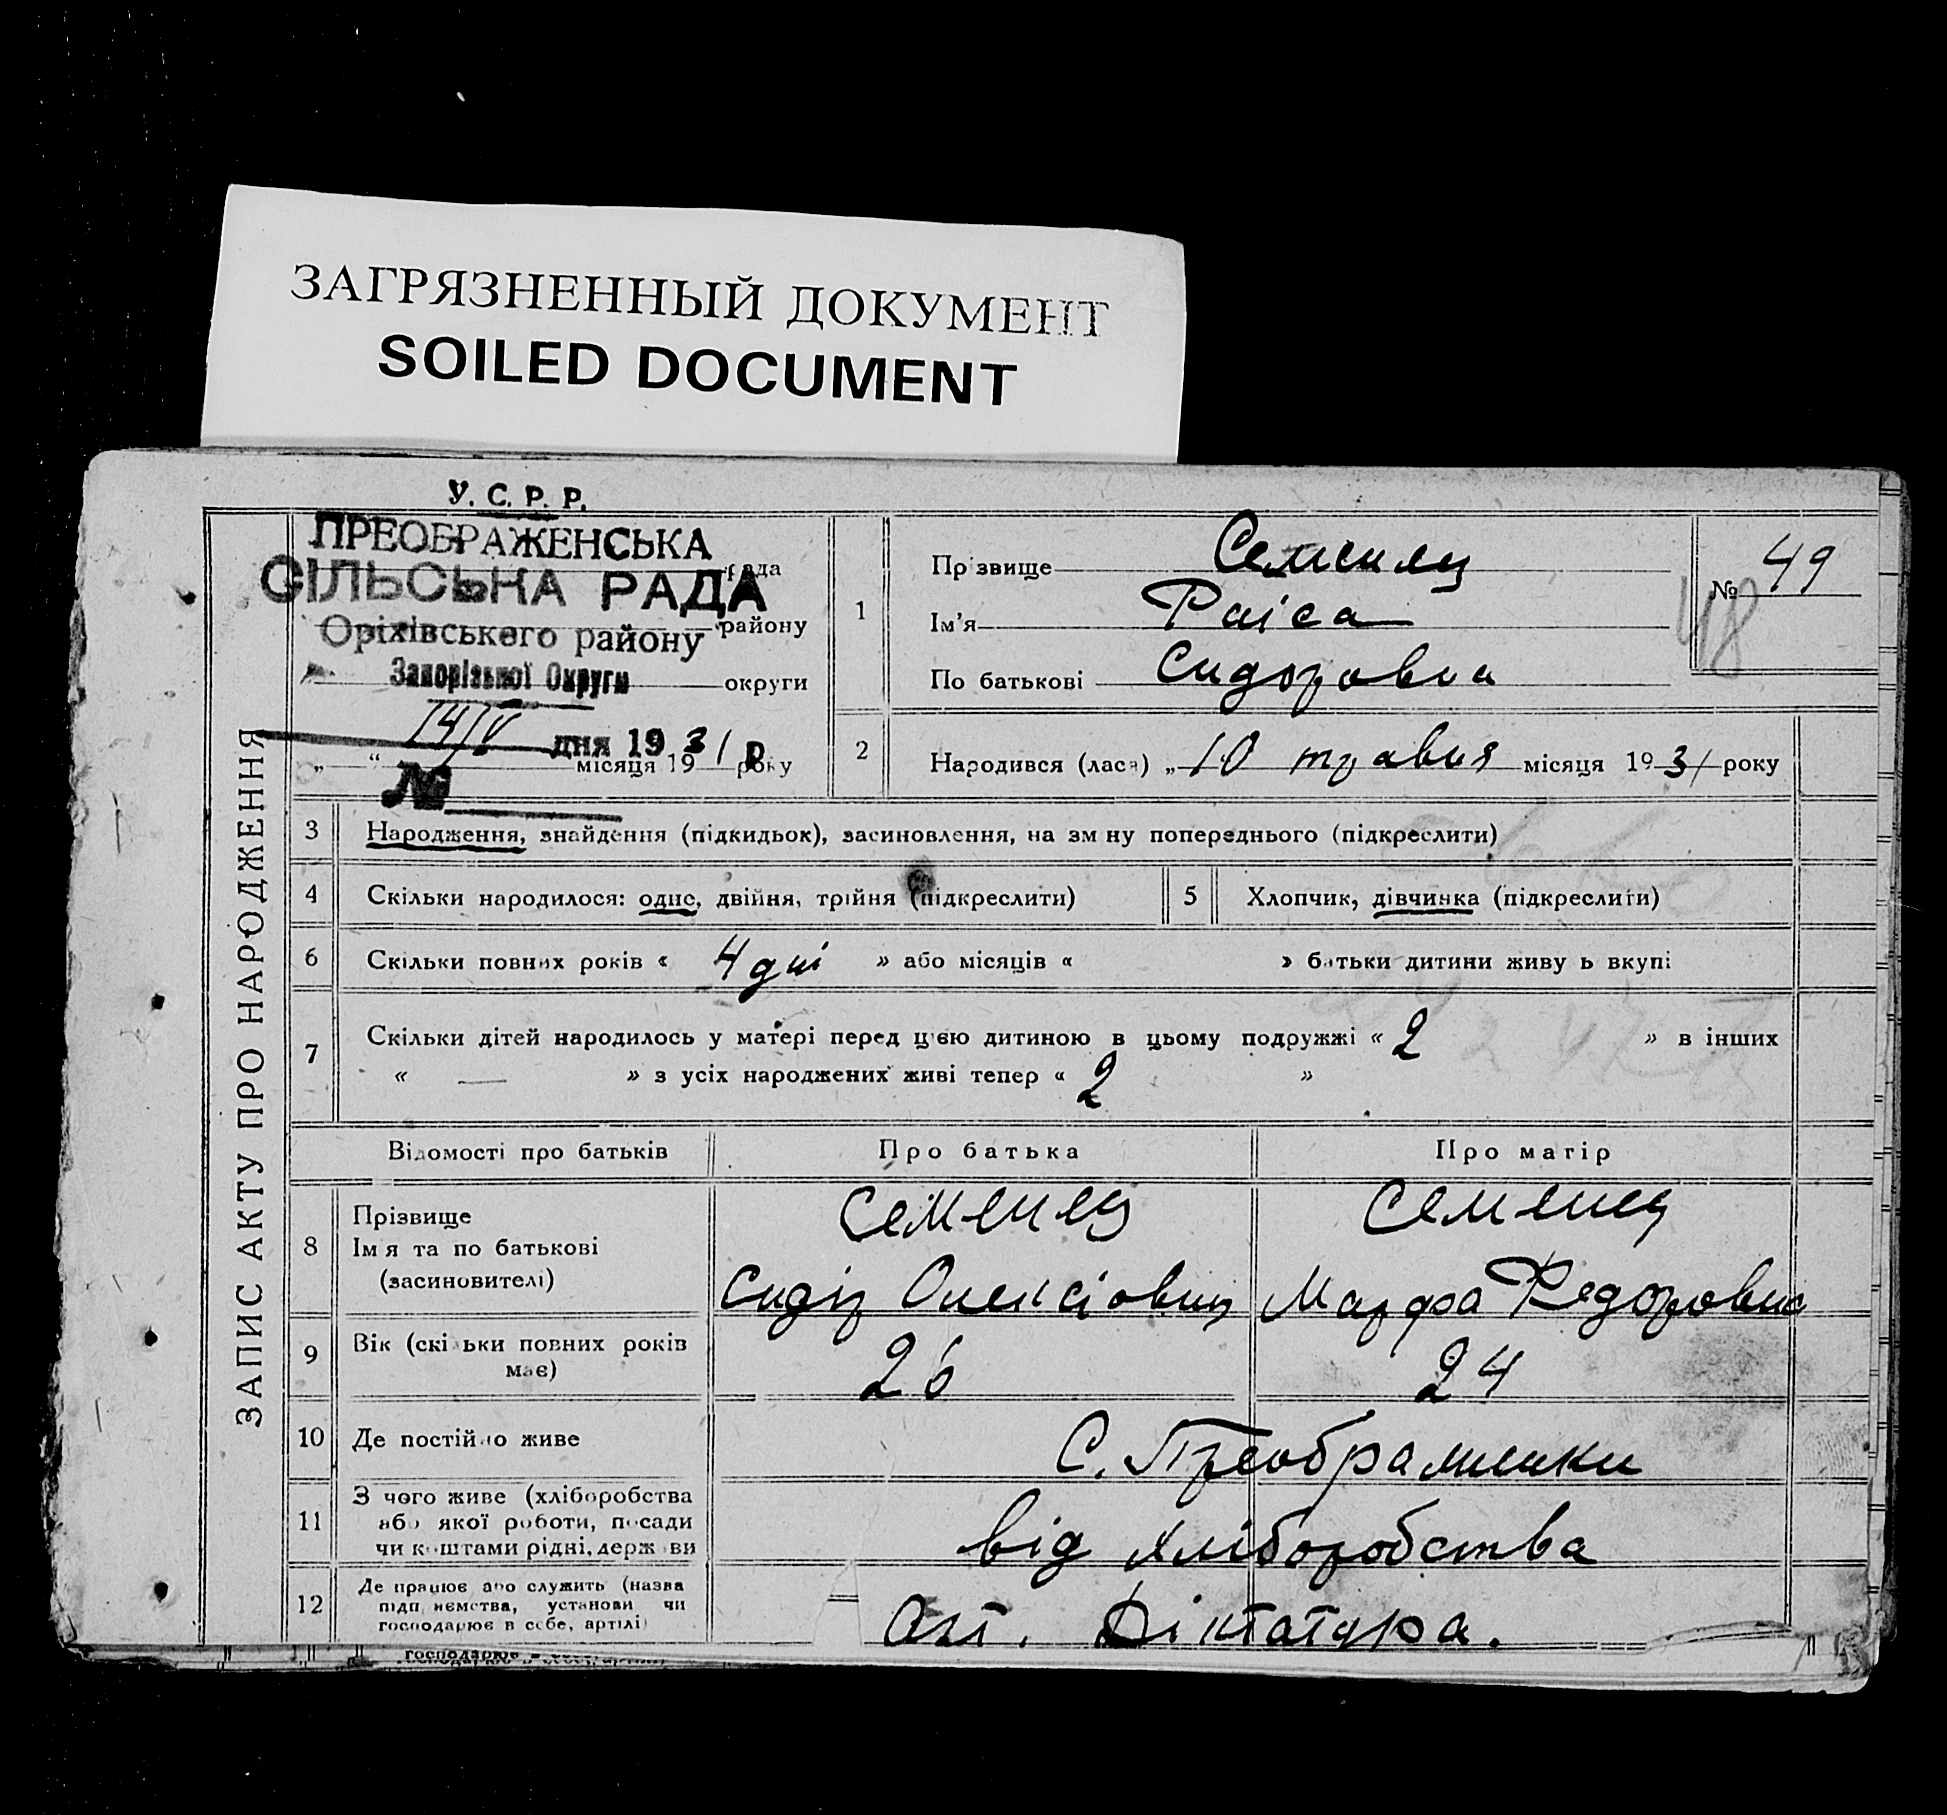 ЗАГРЯЗНЕННЫЙ ДОКУМЕНТ
SOILED DOCUMENT
У. С. Р. Р.
ПРЕОБРАЖЕНСЬКА
рада
СІЛЬСЬКА РАДА
району
Оріхівського району
Запорізької Округи
округи
14/V дня 1931 р.
„ “ місяця 19 року
№
ЗАПИС АКТУ ПРО НАРОДЖЕННЯ
1
Прізвище Семенец
Ім'я Раіса
По батькові Сидоровна
№ 49
48
2
Народився (лася) „10 травня місяця 1931 року
3 Народження, знайдення (підкидьок), засиновлення, на зміну попереднього (підкреслити)
4 Скільки народилося: одне, двійня, трійня (підкреслити)
5 Хлопчик, дівчинка (підкреслити)
6 Скільки повних років « 4 дні » або місяців « » батьки дитини живуть вкупі
7 Скільки дітей народилось у матері перед цією дитиною в цьому подружжі « 2 » в інших
« — » з усіх народжених живі тепер « 2 »
Відомості про батьків Про батька Про матір
8 Прізвище
Ім'я та по батькові
(засиновителі)
Семенец
Сидір Олексіовиц
Семенец
Марфа Федоровна
9 Вік (скільки повних років
має)
26
24
10 Де постійно живе
С. Преображенки
11 З чого живе (хліборобства
або якої роботи, посади
чи коштами рідні, держави
від хліборобства
12 Де працює або служить (назва
підприємства, установи чи
господарює в себе, артілі)
Діктатура.
господарює